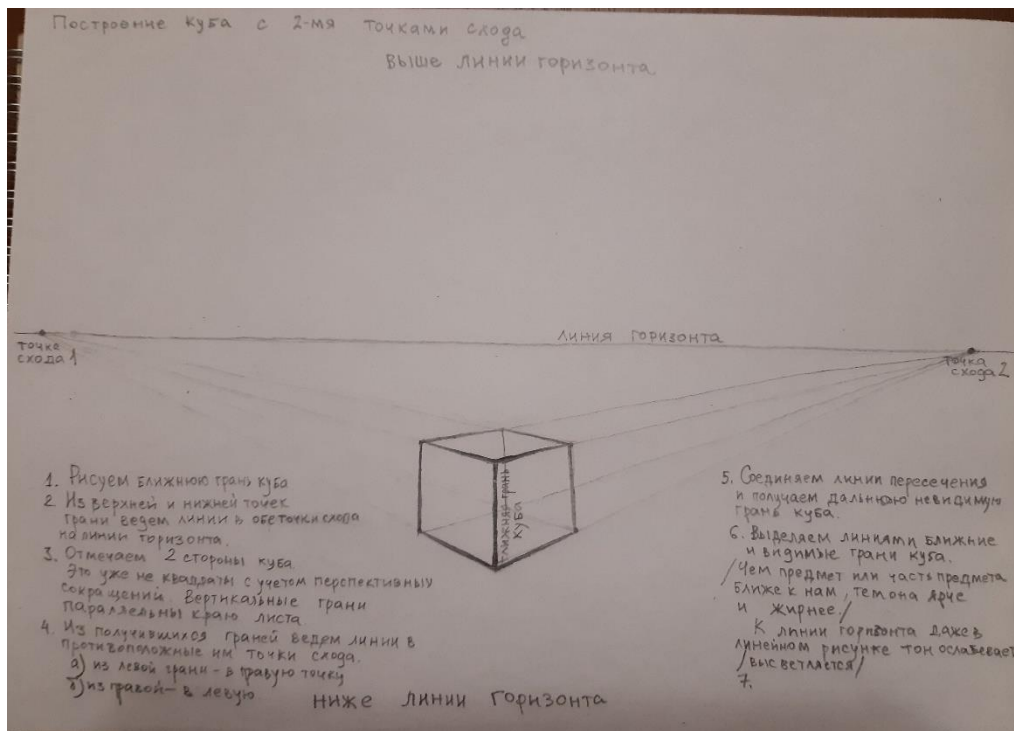 Построение куба с 2-мя точками схода
Выше линии горизонта
линия горизонта
точке
схода 1
точка
схода 2
ближняя грань
куба
1. Рисуем ближнюю грань куба
2. Из верхней и нижней точек
грани ведем линии в обе точки схода
на линии горизонта.
3. Отмечаем 2 стороны куба.
Это уже не квадраты с учетом перспективных
сокращений. Вертикальные грани
параллельны краю листа.
4. Из получившихся граней ведем линии в
противоположные им точки схода.
а) из левой грани - в правую точку
б) из правой - в левую
ниже линии горизонта
5. Соединяем линии пересечения
и получаем дальнюю невидимую
грань куба.
6. Выделяем линиями ближние
и видимые грани куба.
/Чем предмет или часть предмета
ближе к нам, тем она ярче
и жирнее./
К линии горизонта даже в
линейном рисунке тон ослабевает
/высветляется/
7.